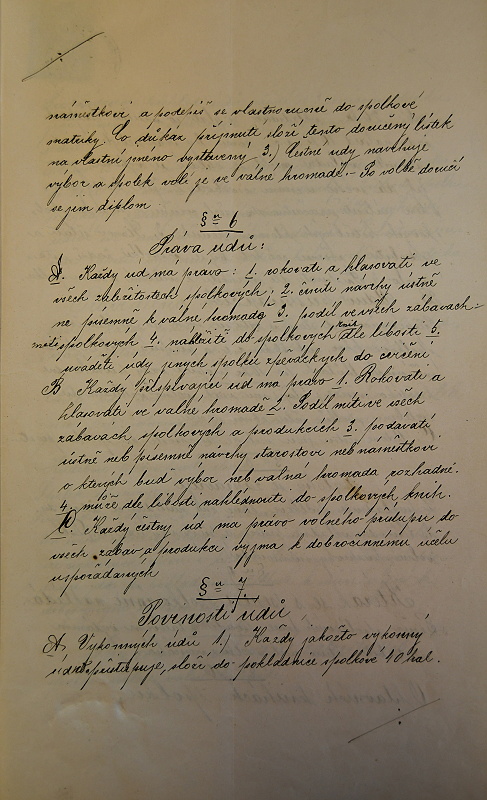 náměstkovi a podepíš se vlastnoručně do spolkové
matriky. Co důkaz přijmutí složí tento doručený lístek
na vlastní jmeno vystavený 3.) Čestné udy navrhuje
výbor a spolek volí je ve valné hromadě. – Po volbě doručí
se jim diplom
§ u 6
Práva údů:
A. Každy úd má právo: 1. rokovati a hlasovati ve
všech záležitostech spolkových. 2. činiti navrhy ústně
ne písemně k valné hromadě 3. podíl ve všech zábavach
míti spolkových 4. nahlížeti do spolkových knih dle libosti 5.
uváděti údy jiných spolků zpěváckých do cvičení
B Každý přispívající ud má právo 1. Rokovati a
hlasovati ve valné hromadě 2. Podíl míti ve všech
zábavách spolkových a produkcích 3. podávati
ústně neb písemně navrhy starostovi neb náměstkovi
o kterých buď výbor neb valná hromada rozhodne.
4. může dle libosti nahlednouti do spolkových knih.
Každy čestny ud má právo volného přístupu do
všech zábav a produkcí vyjma k dobročinnému účelu
uspořádaných
§ u 7.
Povinosti údů
A, Vykonných údů 1.) Každy jakožto vykonný
úd přistupuje, složí do pokladnice spolkové 40 hal.